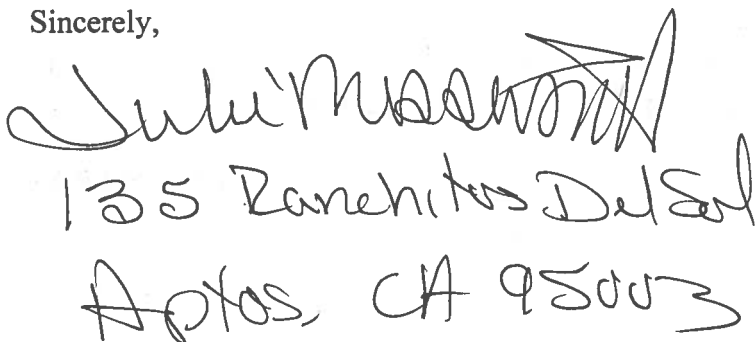 Sincerely,
Julie
135 Ranchitos Del Sol
Aptos, CA 95003